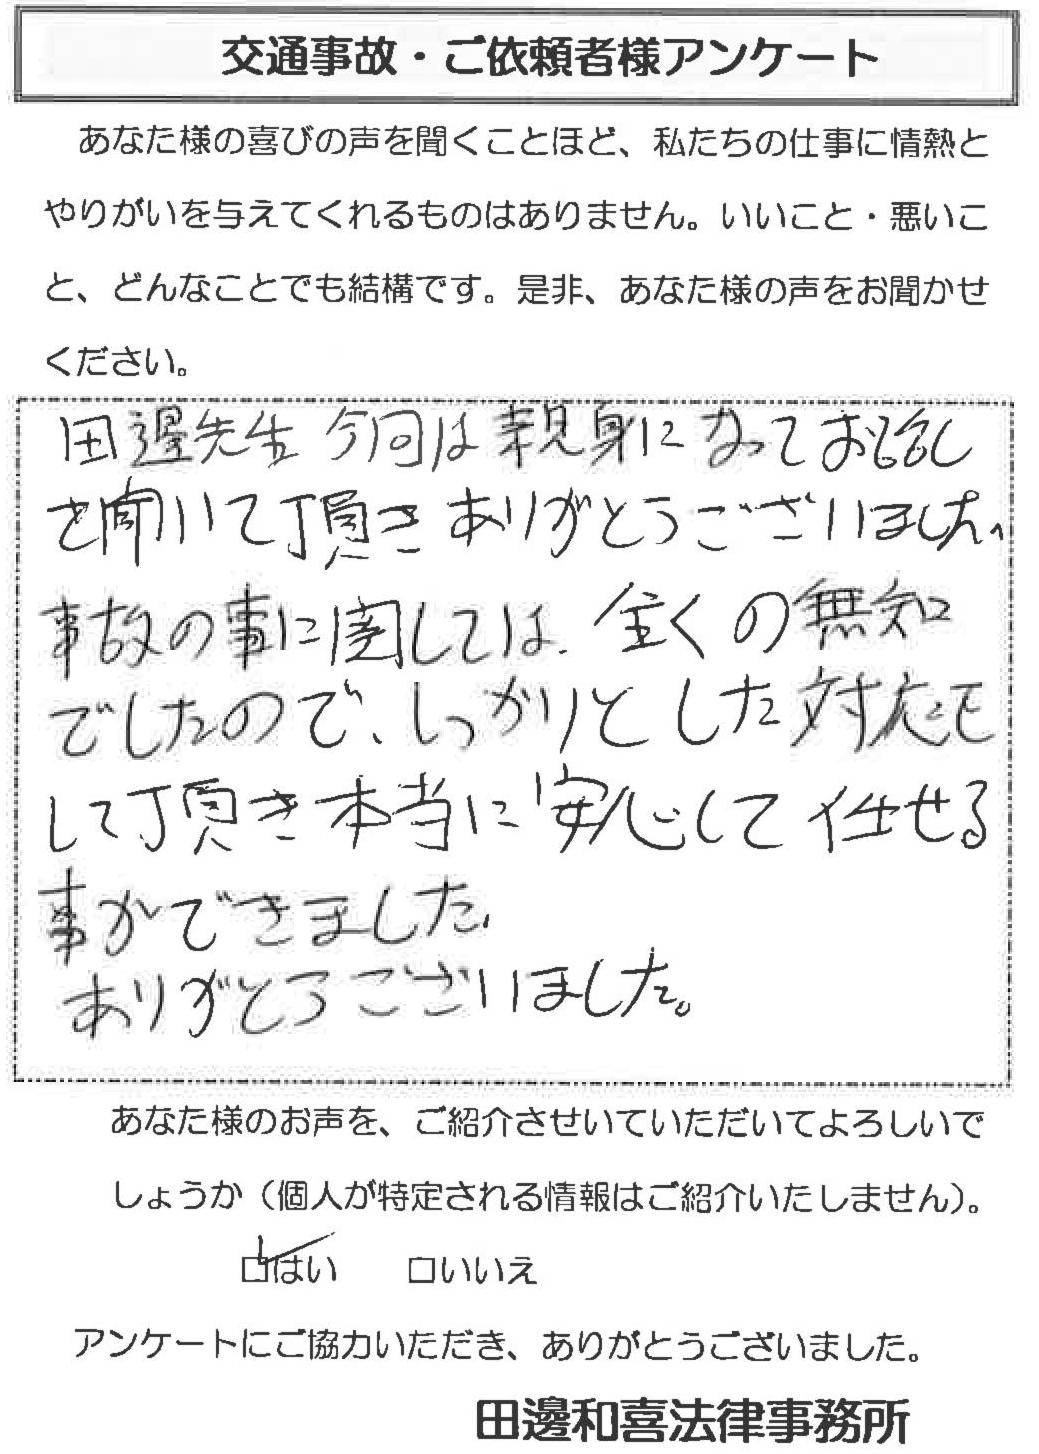 交通事故・ご依頼者様アンケート
あなた様の喜びの声を聞くことほど、私たちの仕事に情熱と
やりがいを与えてくれるものはありません。いいこと・悪いこ
と、どんなことでも結構です。是非、あなた様の声をお聞かせ
ください。
田邊先生 今回は親身になってお話し
を聞いて頂きありがとうございました。
事故の事に関しては、全くの無知
でしたので、しっかりとした対応を
して頂き本当に安心して任せる
事ができました。
ありがとうございました。
あなた様のお声を、ご紹介させいていただいてよろしいで
しょうか（個人が特定される情報はご紹介いたしません）。
☑はい □いいえ
アンケートにご協力いただき、ありがとうございました。
田邊和喜法律事務所